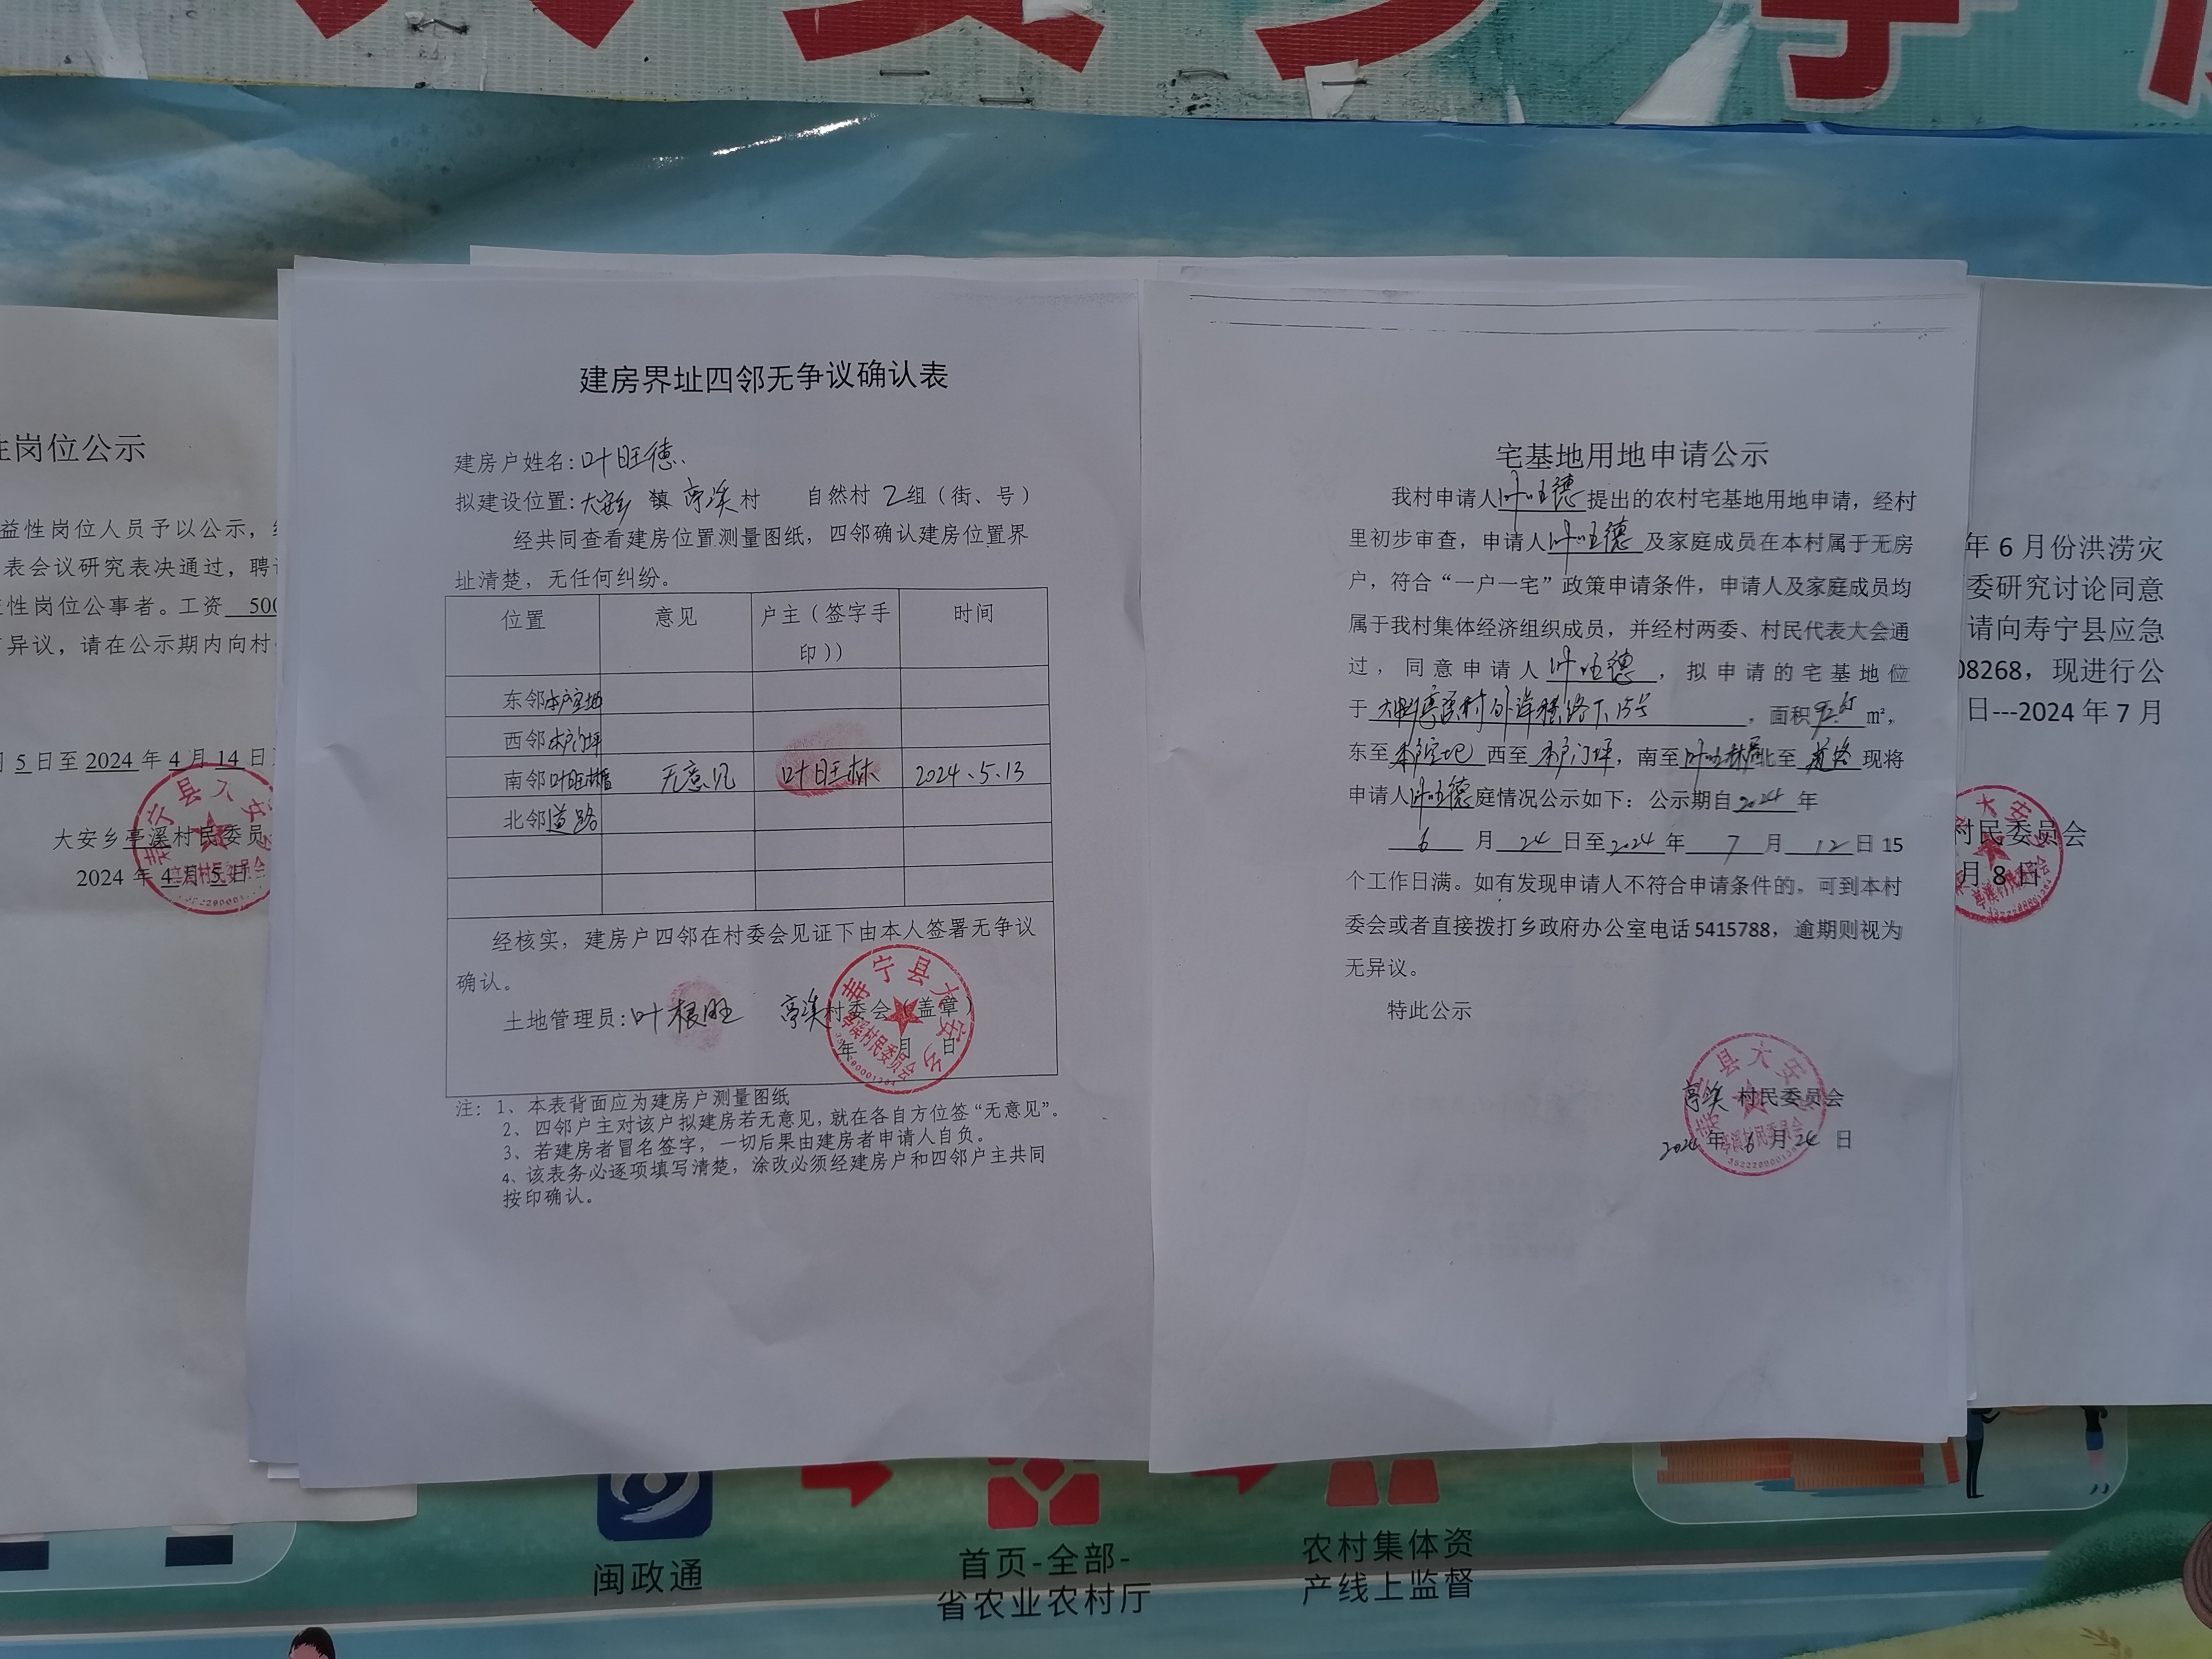 性岗位公示
益性岗位人员予以公示，
表会议研究表决通过，聘
性岗位公事者。工资 500
异议，请在公示期内向村
5日至2024年4月14日
大安乡亭溪村民委员
2024年4月5日
建房界址四邻无争议确认表
建房户姓名：叶旺德
拟建设位置：大安乡 镇 亭溪村 自然村 2组（街、号）
经共同查看建房位置测量图纸，四邻确认建房位置界
址清楚，无任何纠纷。
位置 意见 户主（签字手 时间
印））
东邻本户空地
西邻本户门坪
南邻叶旺林 无意见 叶旺林 2024.5.13
北邻道路
经核实，建房户四邻在村委会见证下由本人签署无争议
确认。
土地管理员：叶根旺 亭溪村委会（盖章）
年 月 日
注：1、本表背面应为建房户测量图纸
2、四邻户主对该户拟建房若无意见，就在各自方位签“无意见”。
3、若建房者冒名签字，一切后果由建房者申请人自负。
4、该表务必逐项填写清楚，涂改必须经建房户和四邻户主共同
按印确认。
宅基地用地申请公示
我村申请人叶旺德提出的农村宅基地用地申请，经村
里初步审查，申请人叶旺德及家庭成员在本村属于无房
户，符合“一户一宅”政策申请条件，申请人及家庭成员均
属于我村集体经济组织成员，并经村两委、村民代表大会通
过，同意申请人叶旺德，拟申请的宅基地位
于大安乡亭溪村 路下15号，面积 m²，
东至本户空地西至本户门坪，南至叶旺林 北至道路现将
申请人叶旺德庭情况公示如下：公示期自2024年
6月24日至2024年7月12日15
个工作日满。如有发现申请人不符合申请条件的，可到本村
委会或者直接拨打乡政府办公室电话5415788，逾期则视为
无异议。
特此公示
亭溪村民委员会
2024年6月24日
年6月份洪涝灾
委研究讨论同意
请向寿宁县应急
08268，现进行公
日---2024年7月
村民委员会
月8日
闽政通
首页-全部-
省农业农村厅
农村集体资
产线上监督